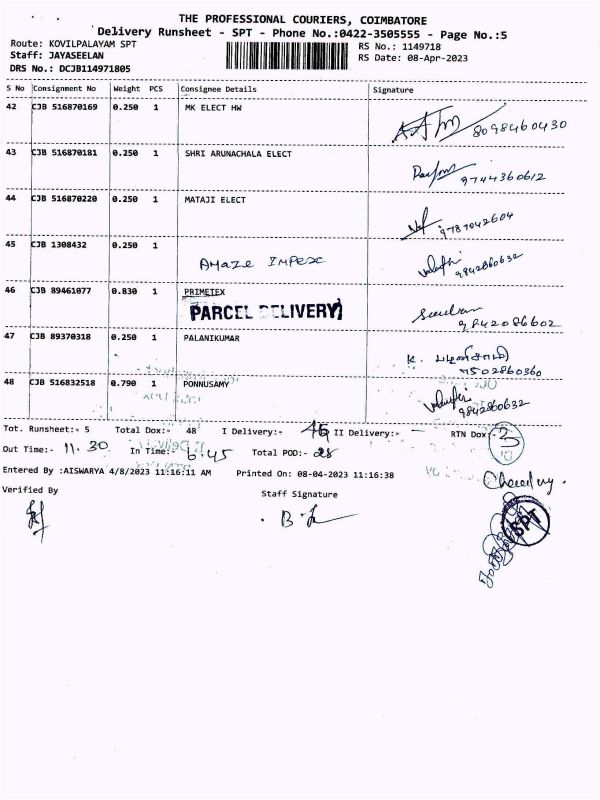 THE PROFESSIONAL COURIERS, COIMBATORE
Delivery Runsheet - SPT - Phone No.:0422-3505555 - Page No.:5
Route: KOVILPALAYAM SPT
RS No.: 1149718
Staff: JAYASEELAN
RS Date: 08-Apr-2023
DRS No.: DCJB114971805
S No Consignment No Weight PCS Consignee Details Signature
42 CJB 516870169 0.250 1 MK ELECT HW
8098460430
43 CJB 516870181 0.250 1 SHRI ARUNACHALA ELECT
9744360612
44 CJB 516870220 0.250 1 MATAJI ELECT
9787042604
45 CJB 1308432 0.250 1
Amaze Impex
9842860632
46 CJB 89461077 0.830 1 PRIMETEX
PARCEL DELIVERY
9842086602
47 CJB 89370318 0.250 1 PALANIKUMAR
K. பழனிசாமி
7502860360
48 CJB 516832518 0.790 1 PONNUSAMY
9842860632
Tot. Runsheet:- 5 Total Dox:- 48 I Delivery:- 45 II Delivery:- - RTN Dox:- 3
Out Time:- 11.30 In Time:- 6.45 Total POD:- 28
Entered By :AISWARYA 4/8/2023 11:16:11 AM Printed On: 08-04-2023 11:16:38
Verified By
Staff Signature
SPT